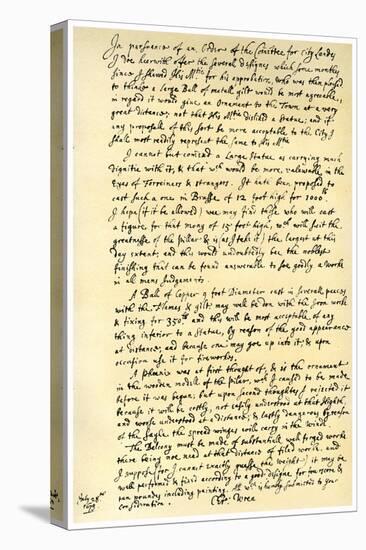 In pursuance of an Order of the Comittee for City Landes
I doe heerwith offer the severall designes which some monthes
since I shewed His Mtie for his approbation, who was then pleased
to thinke a large Ball of metall gilt would be most agreeable,
in regard it would give an Ornament to the Town at a very
great distance; not that His Mtie disliked a Statue; and if
any proposall of this sort be more acceptable to the City I
shall most readily represent the same to His Mtie
I cannot but comend a Large Statue as carrying much
dignitie with it, & that wch would be more valewable in the
Eyes of Forreiners & strangers. It hath been proposed to
cast such a one in Brasse of 12 foot high for 1000lb
I hope (if it be allowed) wee may find those who will cast
a figure for that mony of 15 foot high, wch will suit the
greatnesse of the pillar & is (as I take it) the largest at this
day extant; and this would undoubtedly bee the noblest
finishing that can be found answerable to soe goodly a worke
in all mens Judgements.
A Ball of Copper 9 foot Diameter cast in severall peeces
with the Flames & gilt may well be don with the Iron worke
& fixing for 350lb and this will be most acceptable of any
thing inferior to a Statue, by reason of the good appearance
at distance, and because one may goe up into it; & upon
occasion use it for fireworks.
A phœnix was at first thought of, & is the ornament
in the wooden modell of the pillar, wch I caused to be made
before it was begun; but upon second thoughts I rejected it
because it will be costly, not easily understood at that Highth,
and worse understood at a distance; & lastly dangerous by reason
of the sayle the spread winges will carry in the winde.
The Balcony must be made of substantiall well forged worke
there being noe need at that distance of filed worke, and
I suppose (for I cannot exactly guesse the weight) it may be
well performed & fixed according to a good designe for fourscore &
ten pounds including painting. All wch is humbly submitted to your
Consideration.
Chr. Wren
July 28th
1675